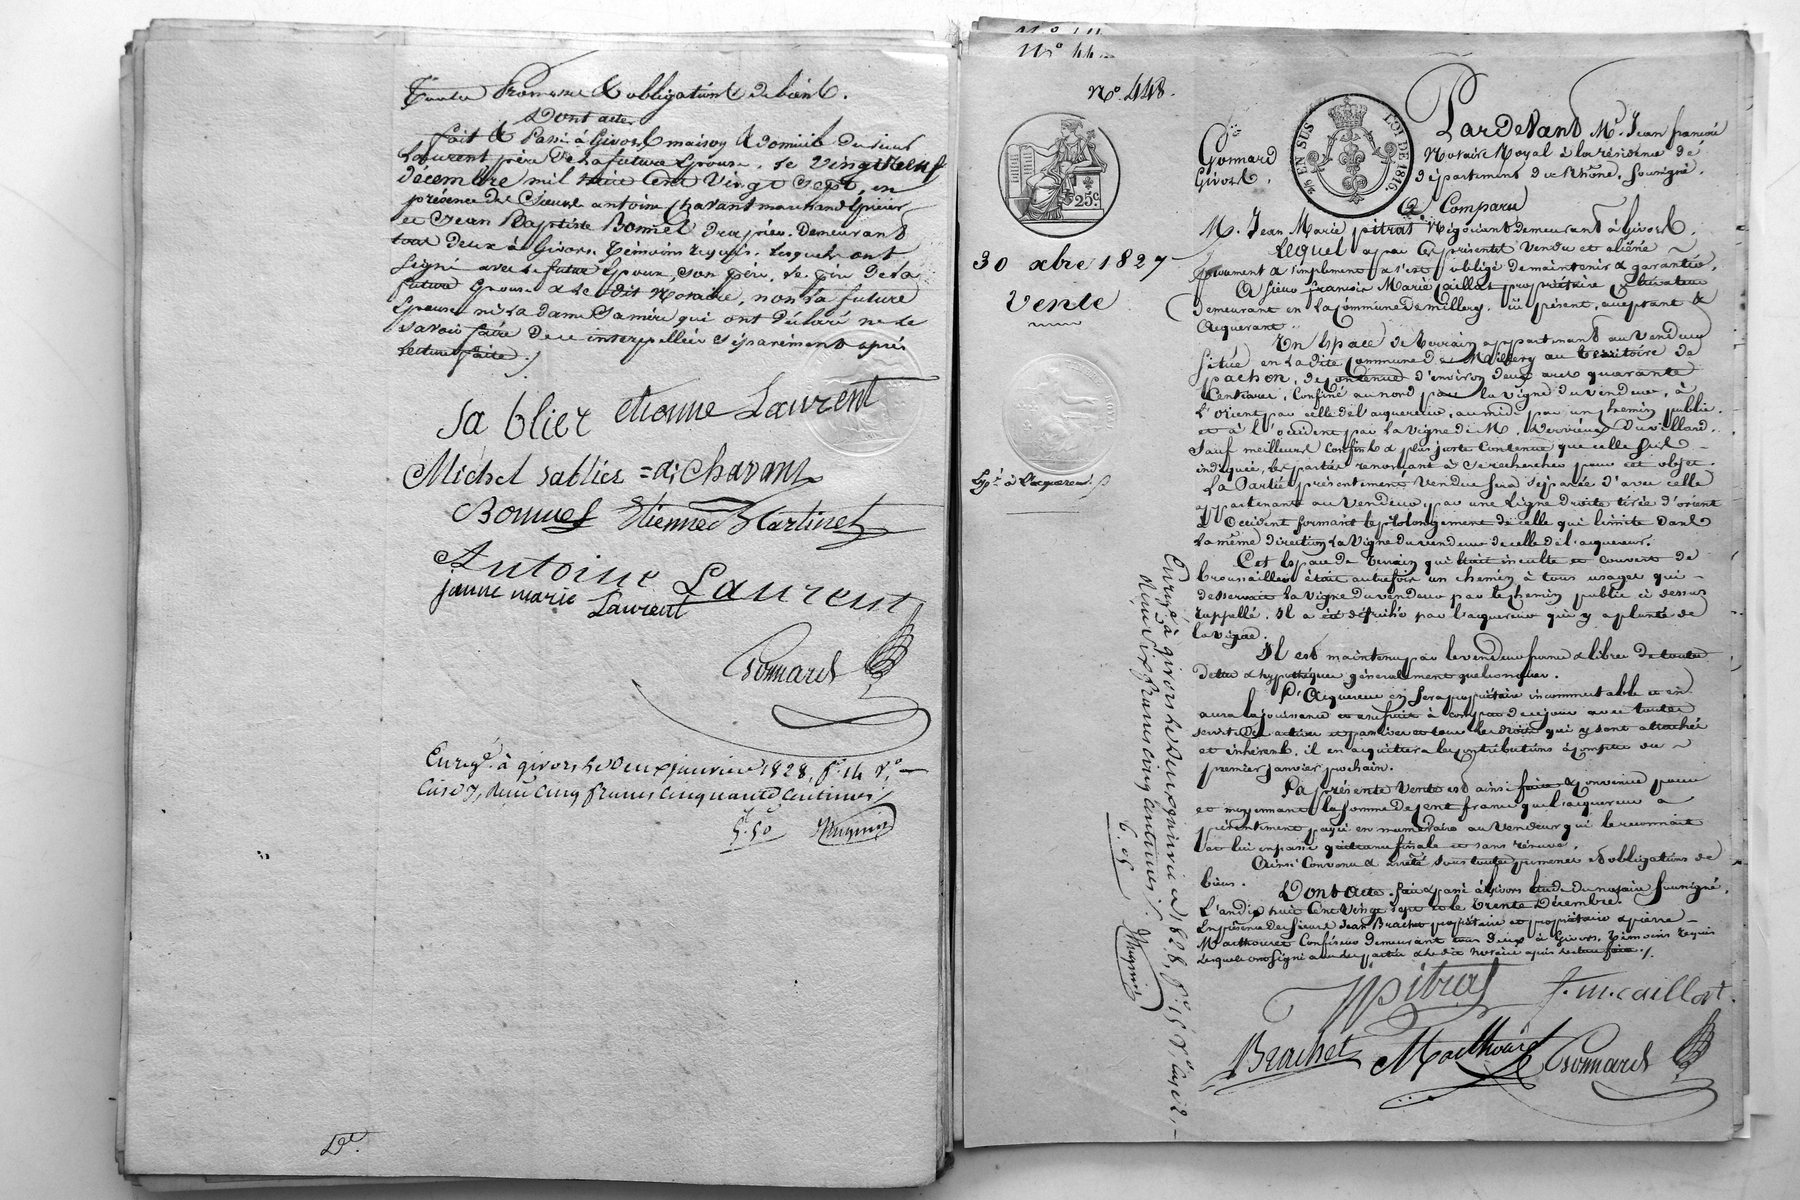 toutes Promesses & obligations de biens.
Dont acte
fait & Passé à Givors maison & domicile du sieur
Laurent père de la future épouse, le vingt neuf
décembre mil huit cent vingt sept, en
présence des Sieurs antoine Chavant marchand épicier
et Jean Baptiste Bonnel drapier. Demeurans
tous deux à Givors, témoins requis, lesquels ont
signé avec le futur époux, son père, le père de la
future épouse & le dit Notaire, non la future
épouse ni la dame sa mère qui ont déclaré ne le
savoir faire de ce interpellées séparément après
lecture faite ./
Sa blier etienne Laurent
Michel Sablier = a; Chavant
Bonnel Etienne Martinet
Antoine Laurent
jeanne marie Laurent
Gonnard
Enregé. à givors le deux janvier 1828, f° 14 r°
case 7, reçu cinq francs cinquante centimes
5. 50
N° 44
N° 448.
25 EN SUS LOI DE 1816.
25 c.
Gonnard
Givors.
30 xbre 1827
Vente
Pardevant Me. Jean françois
Notaire Royal à la résidence de
département du Rhône, soussigné,
A Comparu
M. Jean Marie pitrat Négociant demeurant à Givors,
Lequel a par ces présentes vendu et aliéné
purement & simplement & s'est obligé de maintenir & garantir,
A Sieur françois Marie Caillat propriétaire &
demeurant en la Commune de Millery, ici présent, acceptant &
acquérant
Un espace de terrain appartenant au vendeur
situé en la dite Commune de Millery au territoire de
pachon, de contenue d'environ deux ares quarante
Centiares, Confiné au nord par la vigne du vendeur, à
l'orient par celle de l'acquéreur, au midi par un chemin public
et à l'occident par la vigne de M.
sauf meilleurs confins & plus juste contenue que celle sus
indiquée, les parties renonçant à se rechercher pour cet objet.
La Partie présentement vendue sera séparée d'avec celle
appartenant au vendeur, par une ligne droite tirée d'orient
à Occident formant le prolongement de celle qui limite dans
la même direction la vigne du vendeur de celle de l'acquéreur.
Cet espace de terrain qui était inculte et couvert de
brousailles était autrefois un chemin à tous usages qui
desservait la vigne du vendeur par le chemin public ci dessus
rappellé. Il a été défriché par l'acquéreur qui y a planté de
la vigne.
Il est maintenu par le vendeur franc & libre de toutes
dettes & hypothèques généralement quelconques.
L'Acquéreur en sera propriétaire incommutable et en
aura la jouissance et usufruit à compter de ce jour avec toutes
servitudes actives et passives et tous les droits qui y sont attachés
et inhérents, il en acquittera les contributions à compter du
premier janvier prochain.
La présente Vente est ainsi faite & convenue pour
et moyennant la somme de cent francs que l'acquéreur a
présentement payée en numéraire au vendeur qui le reconnait
et lui en passe quittance finale et sans réserve.
Ainsi Convenu & arrêté sous toutes promesses et obligations de
biens.
Dont Acte. fait & passé à Givors étude du notaire soussigné,
L'an dix huit cent vingt sept et le trente Décembre.
En présence des Sieurs Jean Brachet propriétaire et & pierre
Mathouret Confiseur demeurant tous deux à Givors, témoins requis
lesquels ont signé avec les parties & le dit notaire après lecture faite ./
Pitrat f. m. caillat.
Brachet Gonnard
Enregé. à givors le deux janvier 1828, f° 15 r° case 2,
reçu six francs cinq centimes
6. 05